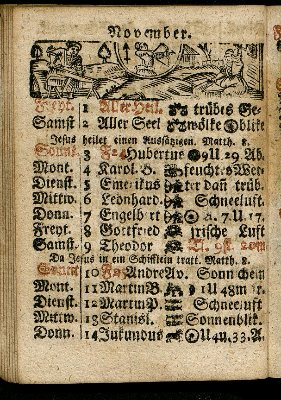 November.
Freyt. 1 Aller Heil. trübes Ge-
Samst 2 Aller Seel wölke blike
Jesus heilet einen Aussätzigen. Matth. 8.
Sonn. 3 Hubertus 9U 29. Ab.
Mont. 4 Karol. B. feuchtes Wet-
Dienst. 5 Emerikus ter dañ trüb.
Mittw. 6 Leonhard. Schneeluft.
Donn. 7 Engelbert a. 7. U 17.
Freyt. 8 Gottfried irische Luft
Samst. 9 Theodor
Da Jesus in ein Schifflein tratt. Matth. 8.
Sonn. 10 Andre Av. Sonnschein
Mont. 11 Martin B. U 48m
Dienst. 12 Martin P. Schneeluft
Mittw. 13 Stanisl. Sonnenblik.
Donn. 14 Jukundus U 4u. 33. A.